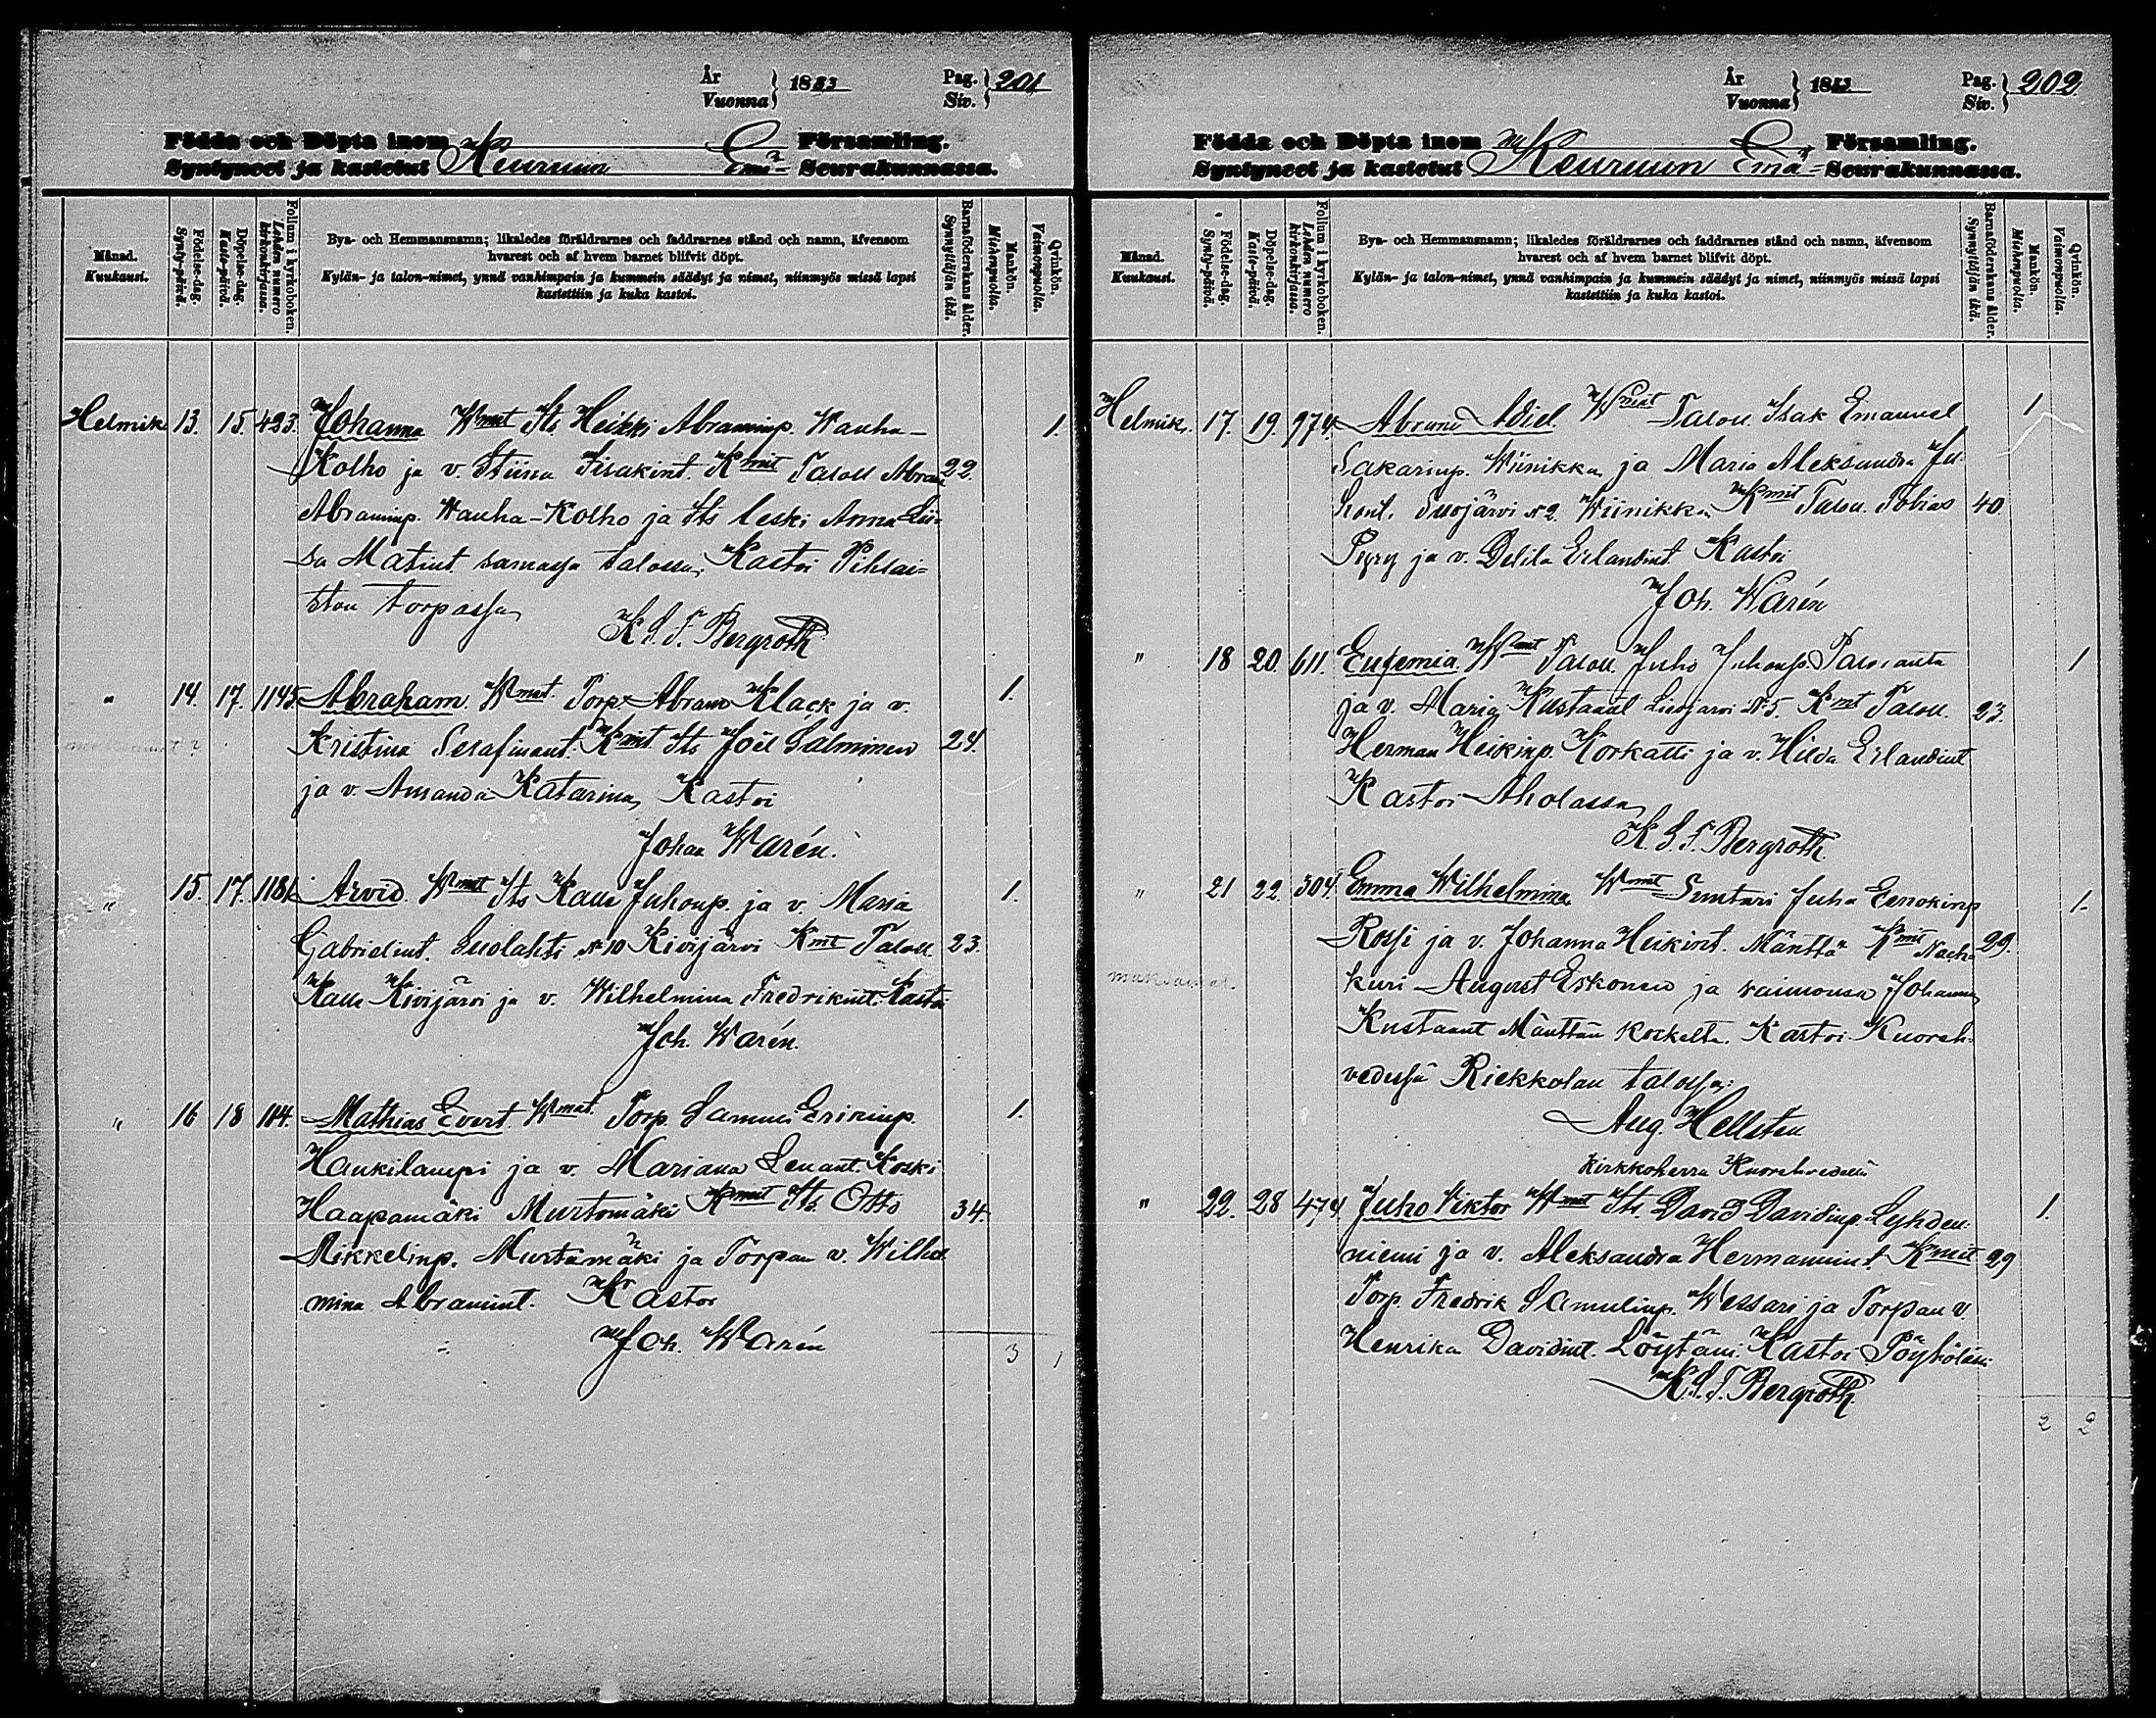 År
Vuonna } 1883 Pag.
Siv. } 201
Födda och Döpta inom Församling.
Syntyneet ja kastetut Keuruun Emä- Seurakunnassa.
Månad.
Kuukausi.
Födelse-dag.
Synty-päivä.
Döpelse-dag.
Kaste-päivä.
Folium i kyrkoboken.
Lehden numero
kirkonkirjassa.
Bya- och Hemmansnamn; likaledes föräldrarnes och faddrarnes stånd och namn, äfvensom
hvarest och af hvem barnet blifvit döpt.
Kylän- ja talon-nimet, ynnä vanhimpain ja kummein säädyt ja nimet, niinmyös missä lapsi
kastettiin ja kuka kastoi.
Barnaföderskans ålder.
Synnyttäjän ikä.
Mankön.
Miehenpuolia.
Qvinkön.
Vaimonpuolia.
Helmik. 13. 15. 423. Johanna Wmat Its. Heikki Abraminp. Wauha- 1.
Kolho ja v. Stiina Iisakint. Kmit Talou Abram 22.
Abraminp. Wauha-Kolho ja Its leski Anna Lii-
sa Matint. samassa talossa, Kastoi Pihlai-
ston torpassa
K. S. F. Bergroth
" 14. 17. 1145 Abraham. Wmat. Torp. Abram Klack ja v. 1.
Kristina Serafinant. Kmit Its Joel Salminen 24.
ja v. Amanda Katarina, Kastoi
Johan Warén.
" 15. 17. 1181 Arvid. Wmat Its Kalle Juhonp. ja v. Maria 1.
Gabrielint. Suolahti N 10 Kivijärvi Kmit Talou. 23.
Kalle Kivijärvi ja v. Wilhelmina Fredrikint. Kastoi
Joh. Warén.
" 16 18 114. Mathias Evert. Wmat. Torp. Samuel Erikinp. 1.
Haukilampi ja v. Mariana Lenant. Koski
Haapamäki Murtomäki Kmit Its. Otto 34.
Mikkelinp. Murtomäki ja Torpan v. Wilhel
mina Abramint. Kastoi
Joh. Warén
3 1
År
Vuonna } 1883 Pag.
Siv. } 202
Födda och Döpta inom Församling.
Syntyneet ja kastetut Keuruun Emä- Seurakunnassa.
Månad.
Kuukausi.
Födelse-dag.
Synty-päivä.
Döpelse-dag.
Kaste-päivä.
Folium i kyrkoboken.
Lehden numero
kirkonkirjassa.
Bya- och Hemmansnamn; likaledes föräldrarnes och faddrarnes stånd och namn, äfvensom
hvarest och af hvem barnet blifvit döpt.
Kylän- ja talon-nimet, ynnä vanhimpain ja kummein säädyt ja nimet, niinmyös missä lapsi
kastettiin ja kuka kastoi.
Barnaföderskans ålder.
Synnyttäjän ikä.
Mankön.
Miehenpuolia.
Qvinkön.
Vaimonpuolia.
Helmik. 17. 19. 974 Abram Adiel. Wmat Talou. Isak Emanuel 1
Sakarinp. Wiinikka ja Maria Aleksandra Ju-
hont. Suojärvi N 2. Wiinikka Kmit Talou. Tobias 40
Pyry ja v. Delila Erlandint. Kastoi
Joh. Warén
" 18 20. 611. Eufemia. Wmat Talou. Juho Juhonp. 1
ja v. Maria Kustaant Liesjärvi N 5. Kmit Talou. 23.
Herman Heikinp. Korkatti ja v. Hilda Erlandint
Kastoi Aholassa
K. S. F. Bergroth.
" 21 22. 304. Emma Wilhelmina, Wmat Suntari Juha Eenokinp 1.
Rossi ja v. Johanna Heikint. Mänttä Kmit Nach- 29.
maksanut. kuri August Eskonen ja vaimonsa Johanna
Kustaant Mänttän koskelta. Kastoi Kuoreh-
vedessä Riekkolan talossa:
Aug. Hellsten
Kirkkoherra Kuorehvedellä
" 22. 28 474. Juho Viktor Wmat Its. David Davidinp. Lyhden- 1.
niemi ja v. Aleksandra Hermannint. Kmit 29
Torp. Fredrik Samulinp. Wessari ja Torpan v.
Henrika Davidint. Löytäni. Kastoi
K. S. F. Bergroth.
2 2